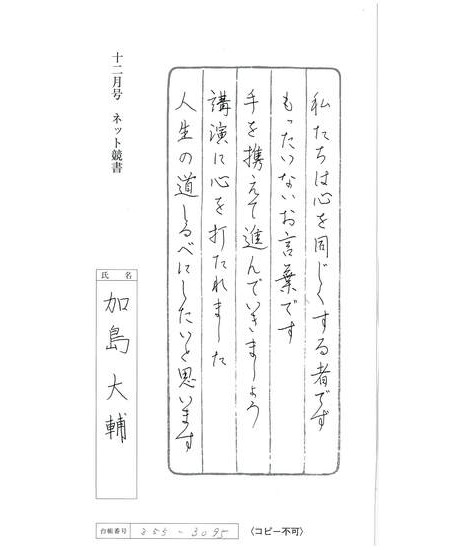 私たちは心を同じくする者です
もったいないお言葉です
手を携えて進んでいきましょう
講演に心を打たれました
人生の道しるべにしたいと思います
十二月号 ネット競書
氏名
加島大輔
台帳番号 255-3095
〈コピー不可〉